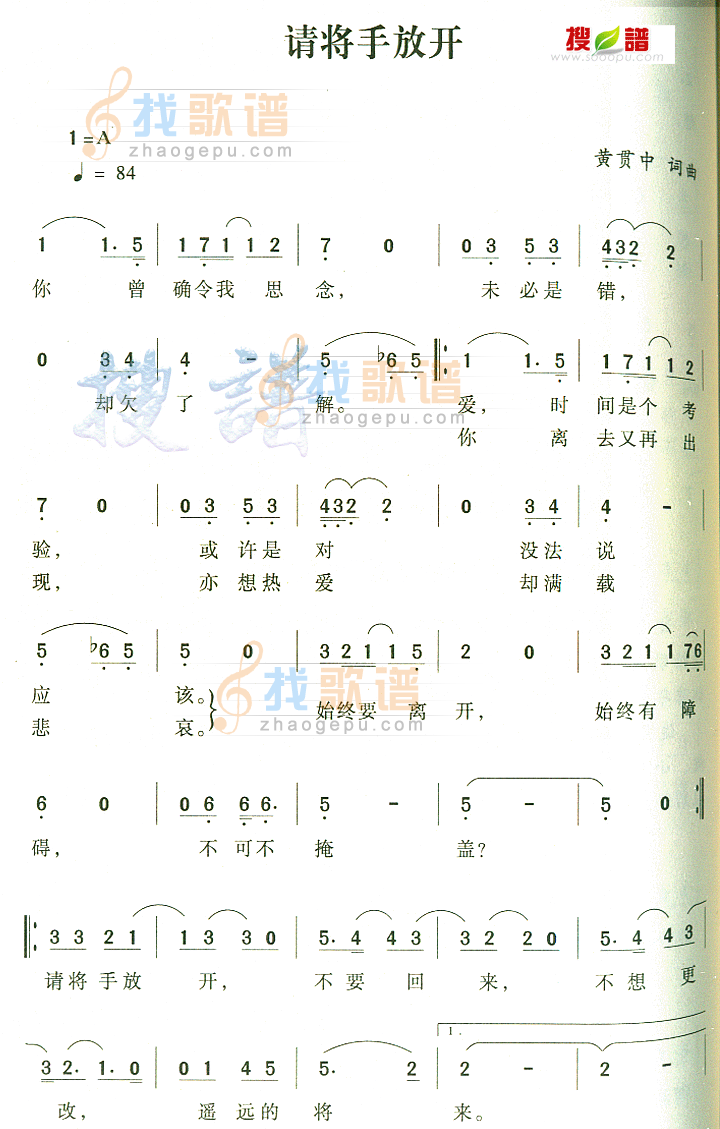 请将手放开
搜谱
www.sooopu.com
找歌谱
zhaogepu.com
1=A
♩= 84
黄贯中 词曲
1 1. 5 | 1 7 1 1 2 | 7 0 | 0 3 5 3 | 4 3 2 2
你 曾 确令我 思 念， 未 必是 错，
0 3 4 | 4 - | 5 ♭6 5 |: 1 1. 5 | 1 7 1 1 2
搜譜
找歌谱
zhaogepu.com
却欠 了 解。 爱， 时 间是个 考
你 离 去又再 出
7 0 | 0 3 5 3 | 4 3 2 2 | 0 3 4 | 4 -
验， 或 许是 对 没法 说
现， 亦 想热 爱 却满 载
5 ♭6 5 | 5 0 | 3 2 1 1 5 | 2 0 | 3 2 1 1 7 6
找歌谱
zhaogepu.com
应 该。
悲 哀。
始终要 离 开， 始终有 障
6 0 | 0 6 6 6. | 5 - | 5 - | 5 0 :|
碍， 不 可不 掩 盖？
|: 3 3 2 1 | 1 3 3 0 | 5. 4 4 3 | 3 2 2 0 | 5. 4 4 3
请将 手放 开， 不 要 回 来， 不 想 更
3 2. 1. 0 | 0 1 4 5 | 5. 2 | 1. 2 - | 2 -
改， 遥 远的 将 来。